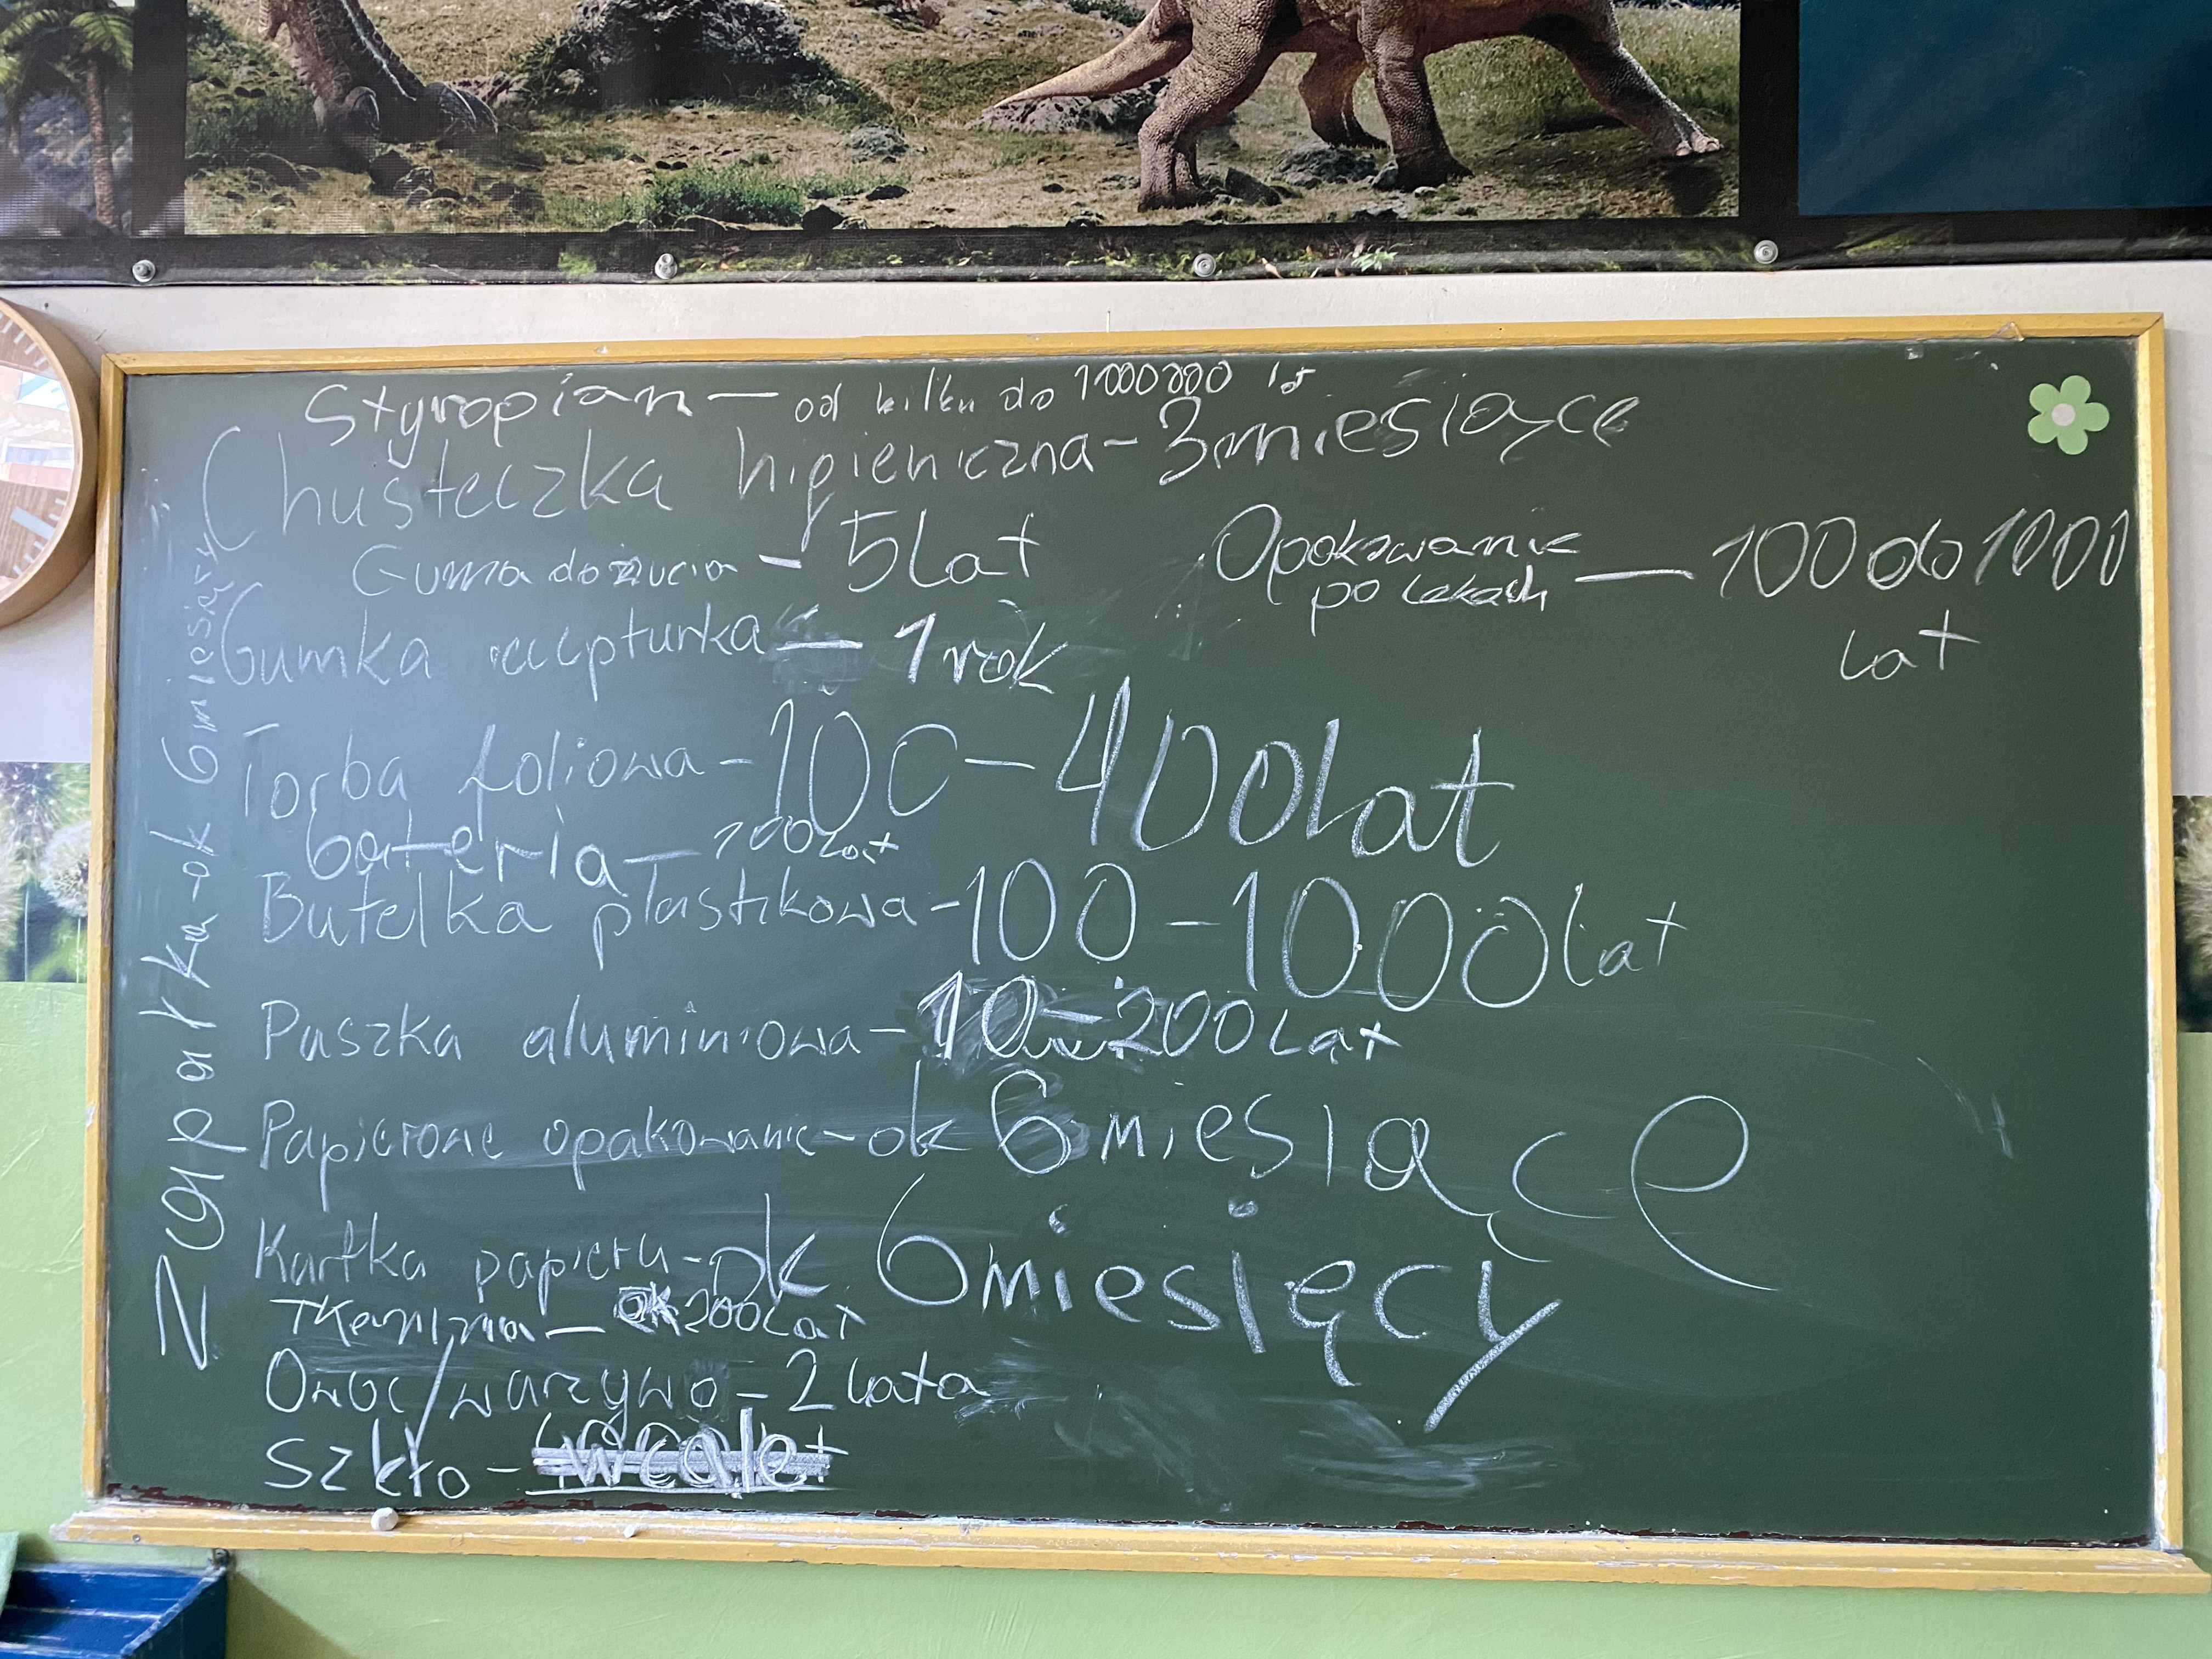 Styropian – od kilku do 1000000 lat
Chusteczka higieniczna – 3 miesiące
Guma do żucia – 5 lat
Opakowanie
po lekach – 100 do 1000
lat
Gumka recepturka – 1 rok
Torba foliowa – 100 – 400 lat
bateria – 200 lat
Butelka plastikowa – 100 – 1000 lat
Puszka aluminiowa – 10 – 200 lat
Papierowe opakowanie – ok 6 miesiące
Kartka papieru – ok 6 miesięcy
Tkanina – ok 200 lat
Owoc/warzywo – 2 lata
Szkło – wcale
Zapałka – ok 6 miesięcy